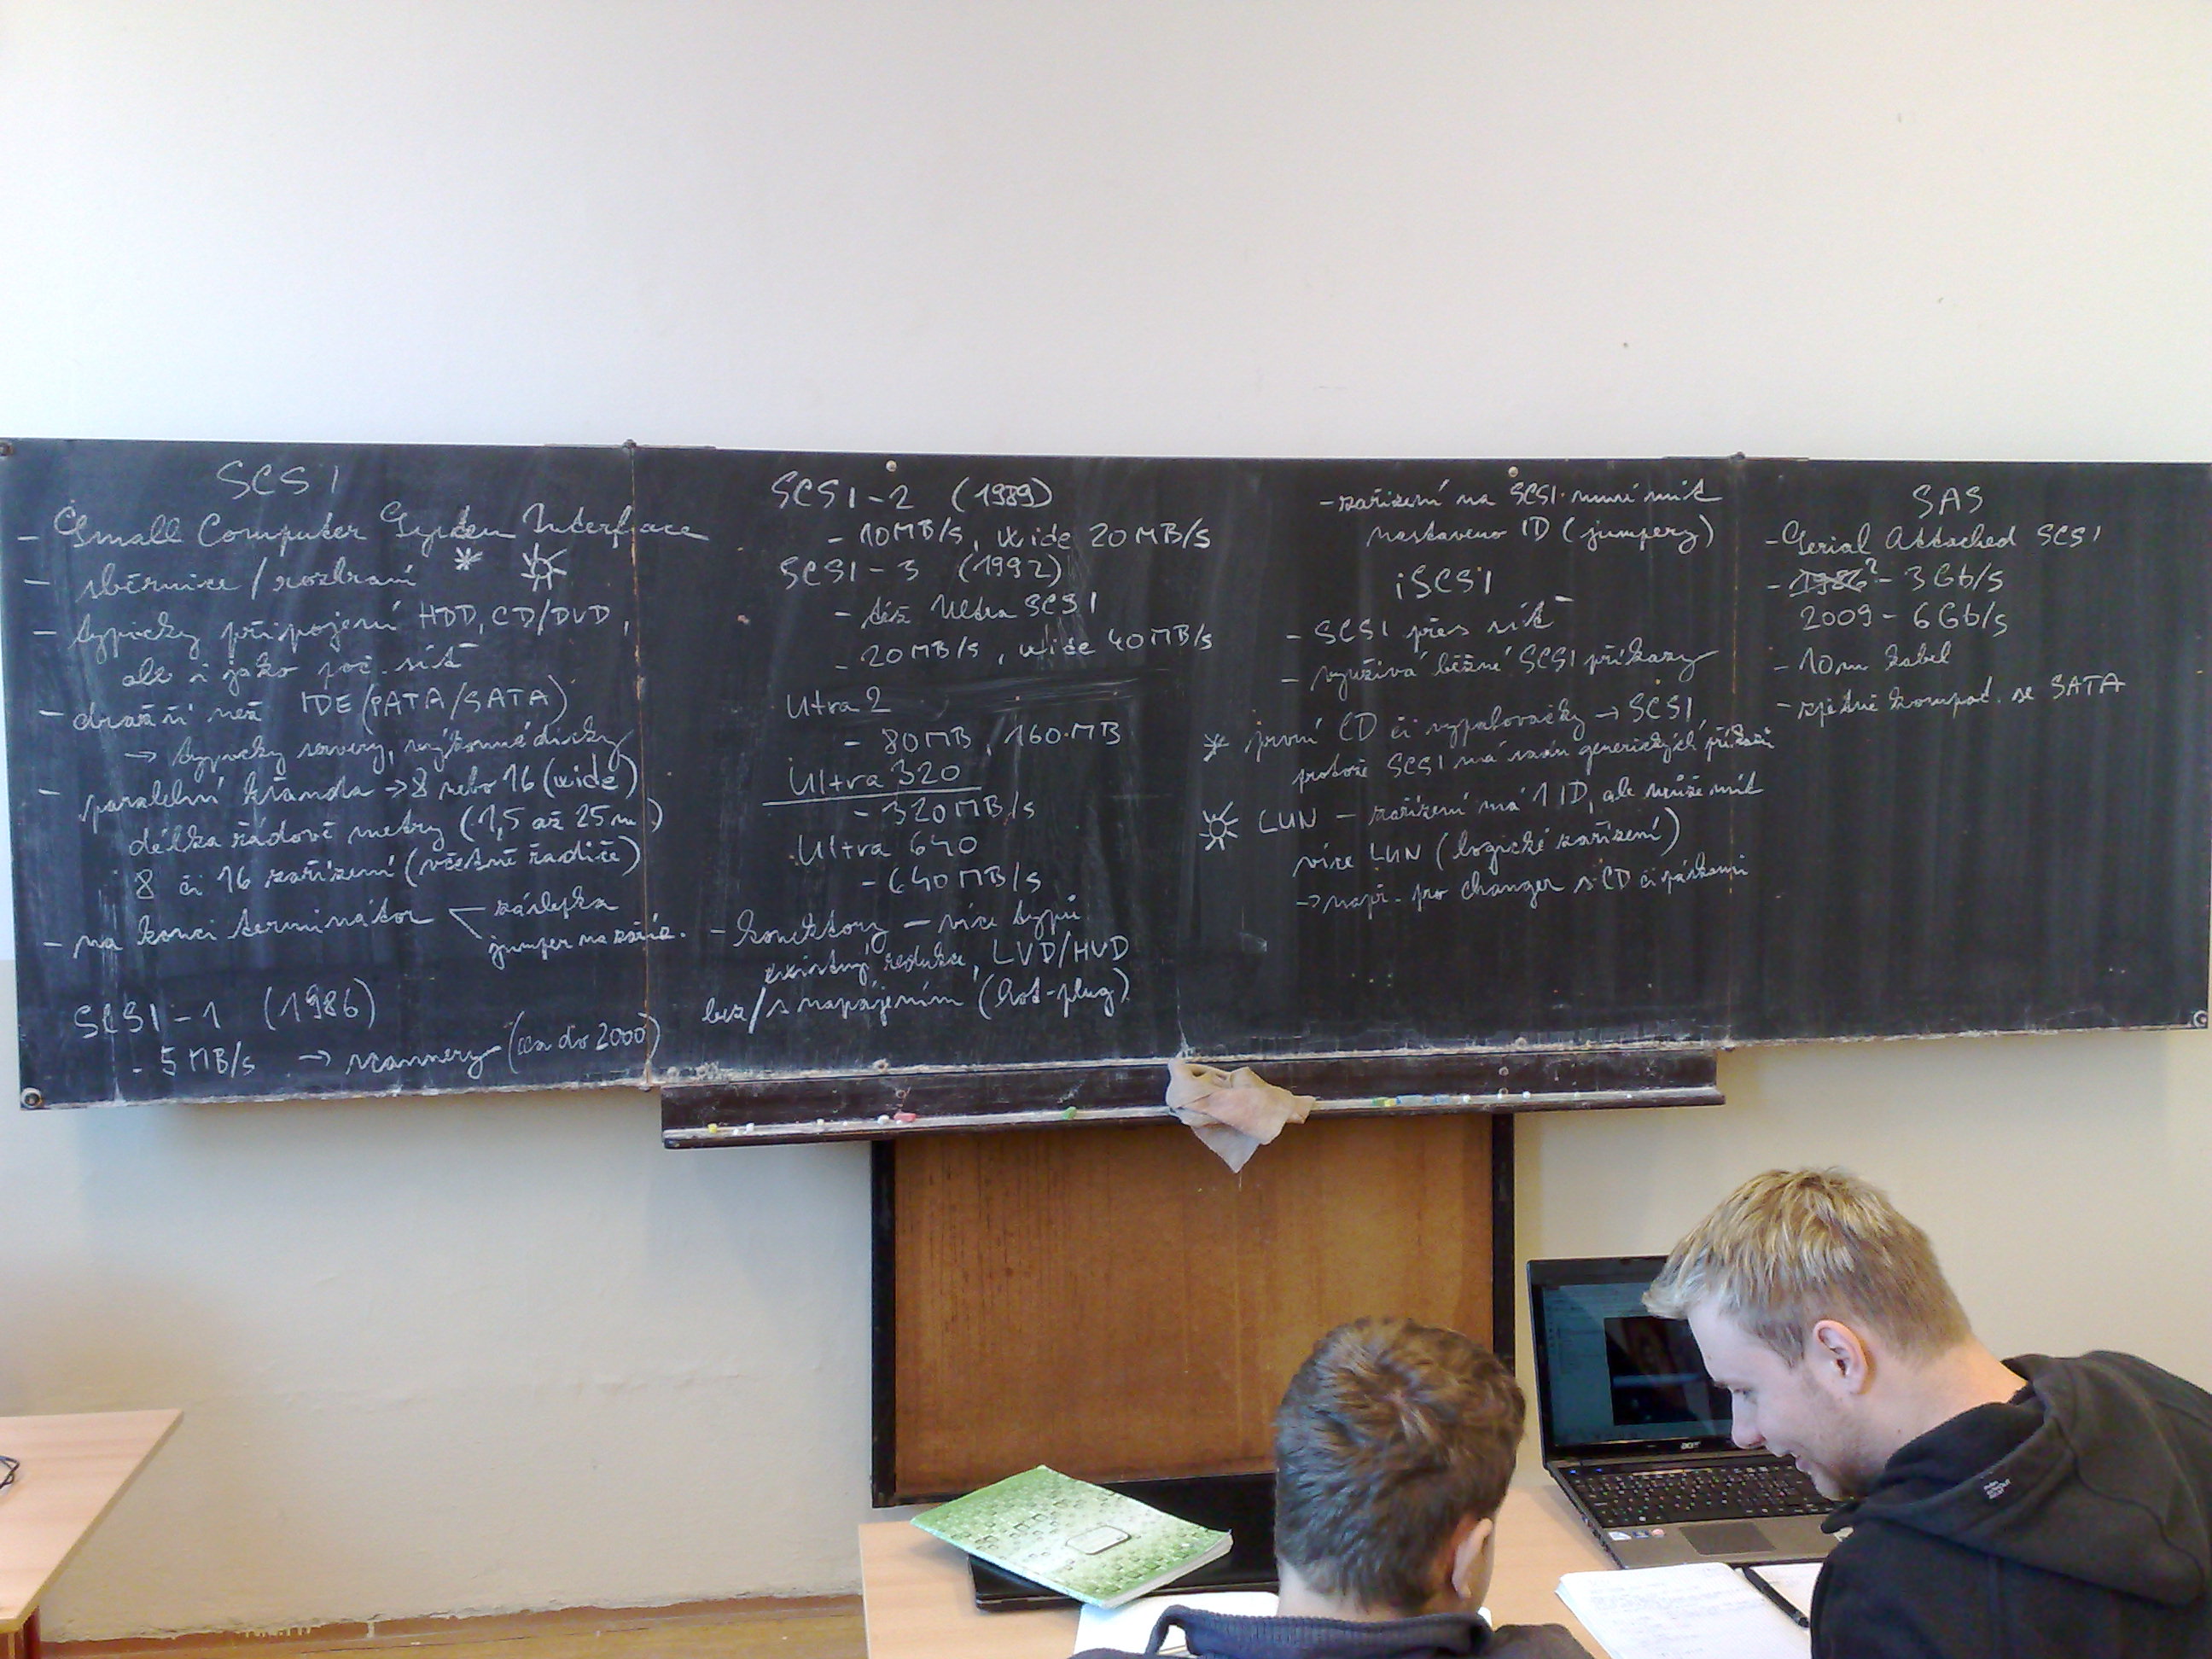 SCSI
- Small Computer System Interface
- sběrnice / rozhraní
- typicky připojení HDD, CD/DVD,
ale i jako poč. síť
- dražší než IDE (PATA/SATA)
→ typicky servery, výkonné disky
- paralelní šňůra → 8 nebo 16 (wide)
délka řádově metry (1,5 až 25 m)
8 či 16 zařízení (včetně řadiče)
- na konci terminátor
záslepka
jumper na zaříz.
SCSI-1 (1986)
- 5 MB/s → scannery (cca do 2000)
SCSI-2 (1989)
- 10MB/s, wide 20MB/s
SCSI-3 (1992)
- též Ultra SCSI
- 20MB/s, wide 40MB/s
Utra 2
- 80MB, 160MB
Ultra 320
- 320MB/s
Ultra 640
- 640MB/s
- konektory - více typů
existují redukce, LVD/HVD
bez/s napájením (hot-plug)
- zařízení na SCSI musí mít
nastaveno ID (jumpery)
iSCSI
- SCSI přes síť
- využívá běžné SCSI příkazy
první CD či vypalovačky → SCSI,
protože SCSI má sadu generických příkazů
LUN - zařízení má 1 ID, ale může mít
více LUN (logické zařízení)
→ např. pro changer s CD či páskami
SAS
- Serial Attached SCSI
- 1986? - 3 Gb/s
2009 - 6 Gb/s
- 10m kabel
- zpětně kompat. se SATA
acer